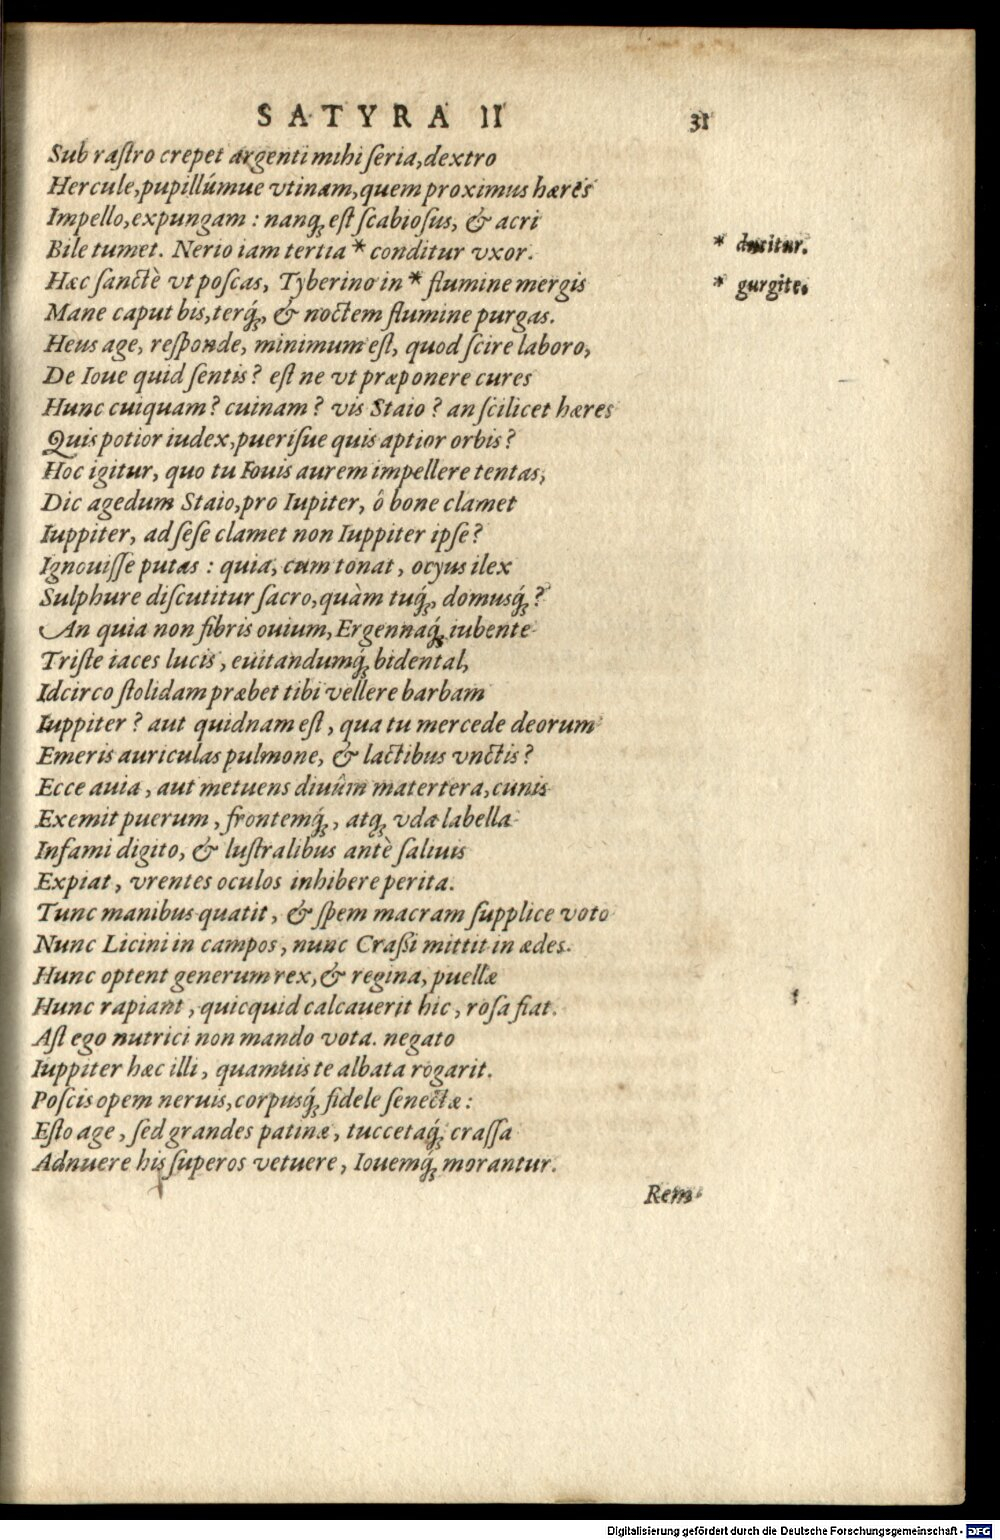 SATYRA II 31
Sub raſtro crepet argenti mihi ſeria, dextro
Hercule, pupillúmue vtinam, quem proximus hæres
Impello, expungam : nanq; eſt ſcabioſus, & acri
Bile tumet. Nerio iam tertia * conditur vxor.
* ducitur.
Hæc ſanctè vt poſcas, Tyberino in * flumine mergis
* gurgite.
Mane caput bis, terq́;, & noctem flumine purgas.
Heus age, reſponde, minimum eſt, quod ſcire laboro,
De Ioue quid ſentis? eſt ne vt præponere cures
Hunc cuiquam? cuinam? vis Staio? an ſcilicet hæres
Quis potior iudex, pueriſue quis aptior orbis?
Hoc igitur, quo tu Iouis aurem impellere tentas,
Dic agedum Staio, pro Iupiter, ô bone clamet
Iuppiter, ad ſeſe clamet non Iuppiter ipſe?
Ignouiſſe putas : quia, cum tonat, ocyus ilex
Sulphure diſcutitur ſacro, quàm tuq́;, domusq́;?
An quia non fibris ouium, Ergennaq́; iubente
Triſte iaces lucis, euitandumq́; bidental,
Idcirco ſtolidam præbet tibi vellere barbam
Iuppiter? aut quidnam eſt, qua tu mercede deorum
Emeris auriculas pulmone, & lactibus vnctis?
Ecce auia, aut metuens diuûm matertera, cunis
Exemit puerum, frontemq́;, atq; vda labella
Infami digito, & luſtralibus antè ſaliuis
Expiat, vrentes oculos inhibere perita.
Tunc manibus quatit, & ſpem macram ſupplice voto
Nunc Licini in campos, nunc Craßi mittit in ædes.
Hunc optent generum rex, & regina, puellæ
Hunc rapiant, quicquid calcauerit hic, roſa fiat.
Aſt ego nutrici non mando vota. negato
Iuppiter hæc illi, quamuis te albata rogarit.
Poſcis opem neruis, corpusq́; fidele ſenectæ:
Eſto age, ſed grandes patinæ, tuccetaq́; craſſa
Adnuere his ſuperos vetuere, Iouemq́; morantur.
Rem
Digitalisierung gefördert durch die Deutsche Forschungsgemeinschaft - DFG